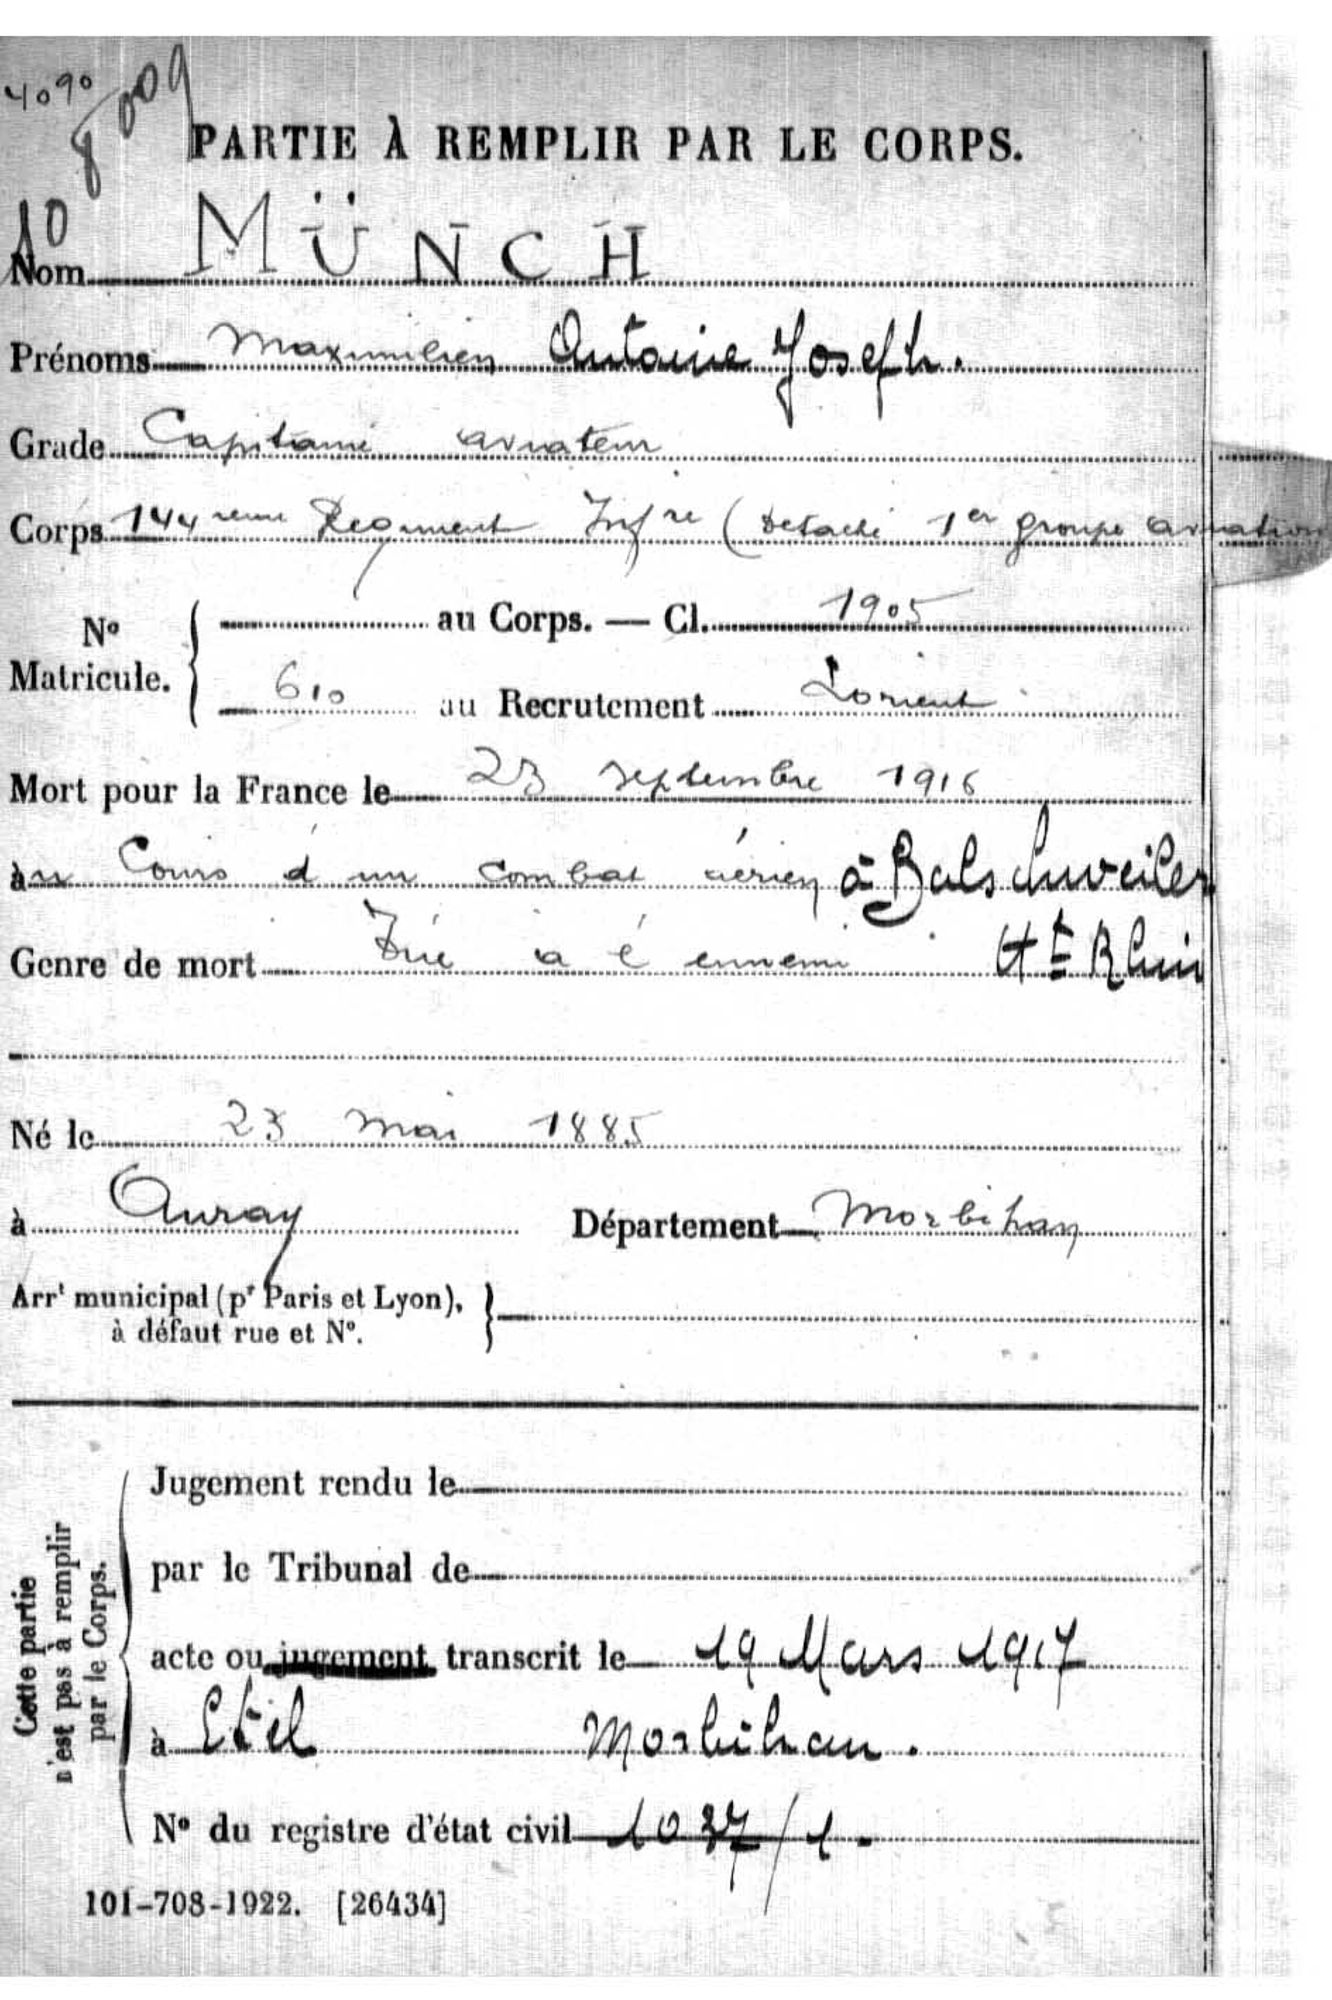 4090
8009
PARTIE À REMPLIR PAR LE CORPS.
10
Nom MÜNCH
Prénoms Maximilien Antoine Joseph.
Grade Capitaine aviateur
Corps 144 Regiment Infre (Detaché 1er groupe aviation
No Matricule. { au Corps. — Cl. 1905
610 au Recrutement Lorient
Mort pour la France le 23 septembre 1916
au Cours d'un combat aérien à Balschweiler
Genre de mort Tué à l'ennemi Ht Rhin
Né le 23 Mai 1885
à Auray Département Morbihan
Arrt municipal (pr Paris et Lyon), }
à défaut rue et No.
Cette partie
n'est pas à remplir
par le Corps.
Jugement rendu le
par le Tribunal de
acte ou jugement transcrit le 19 Mars 1917
à Etel Morbihan.
No du registre d'état civil 1037/1.
101-708-1922. [26434]